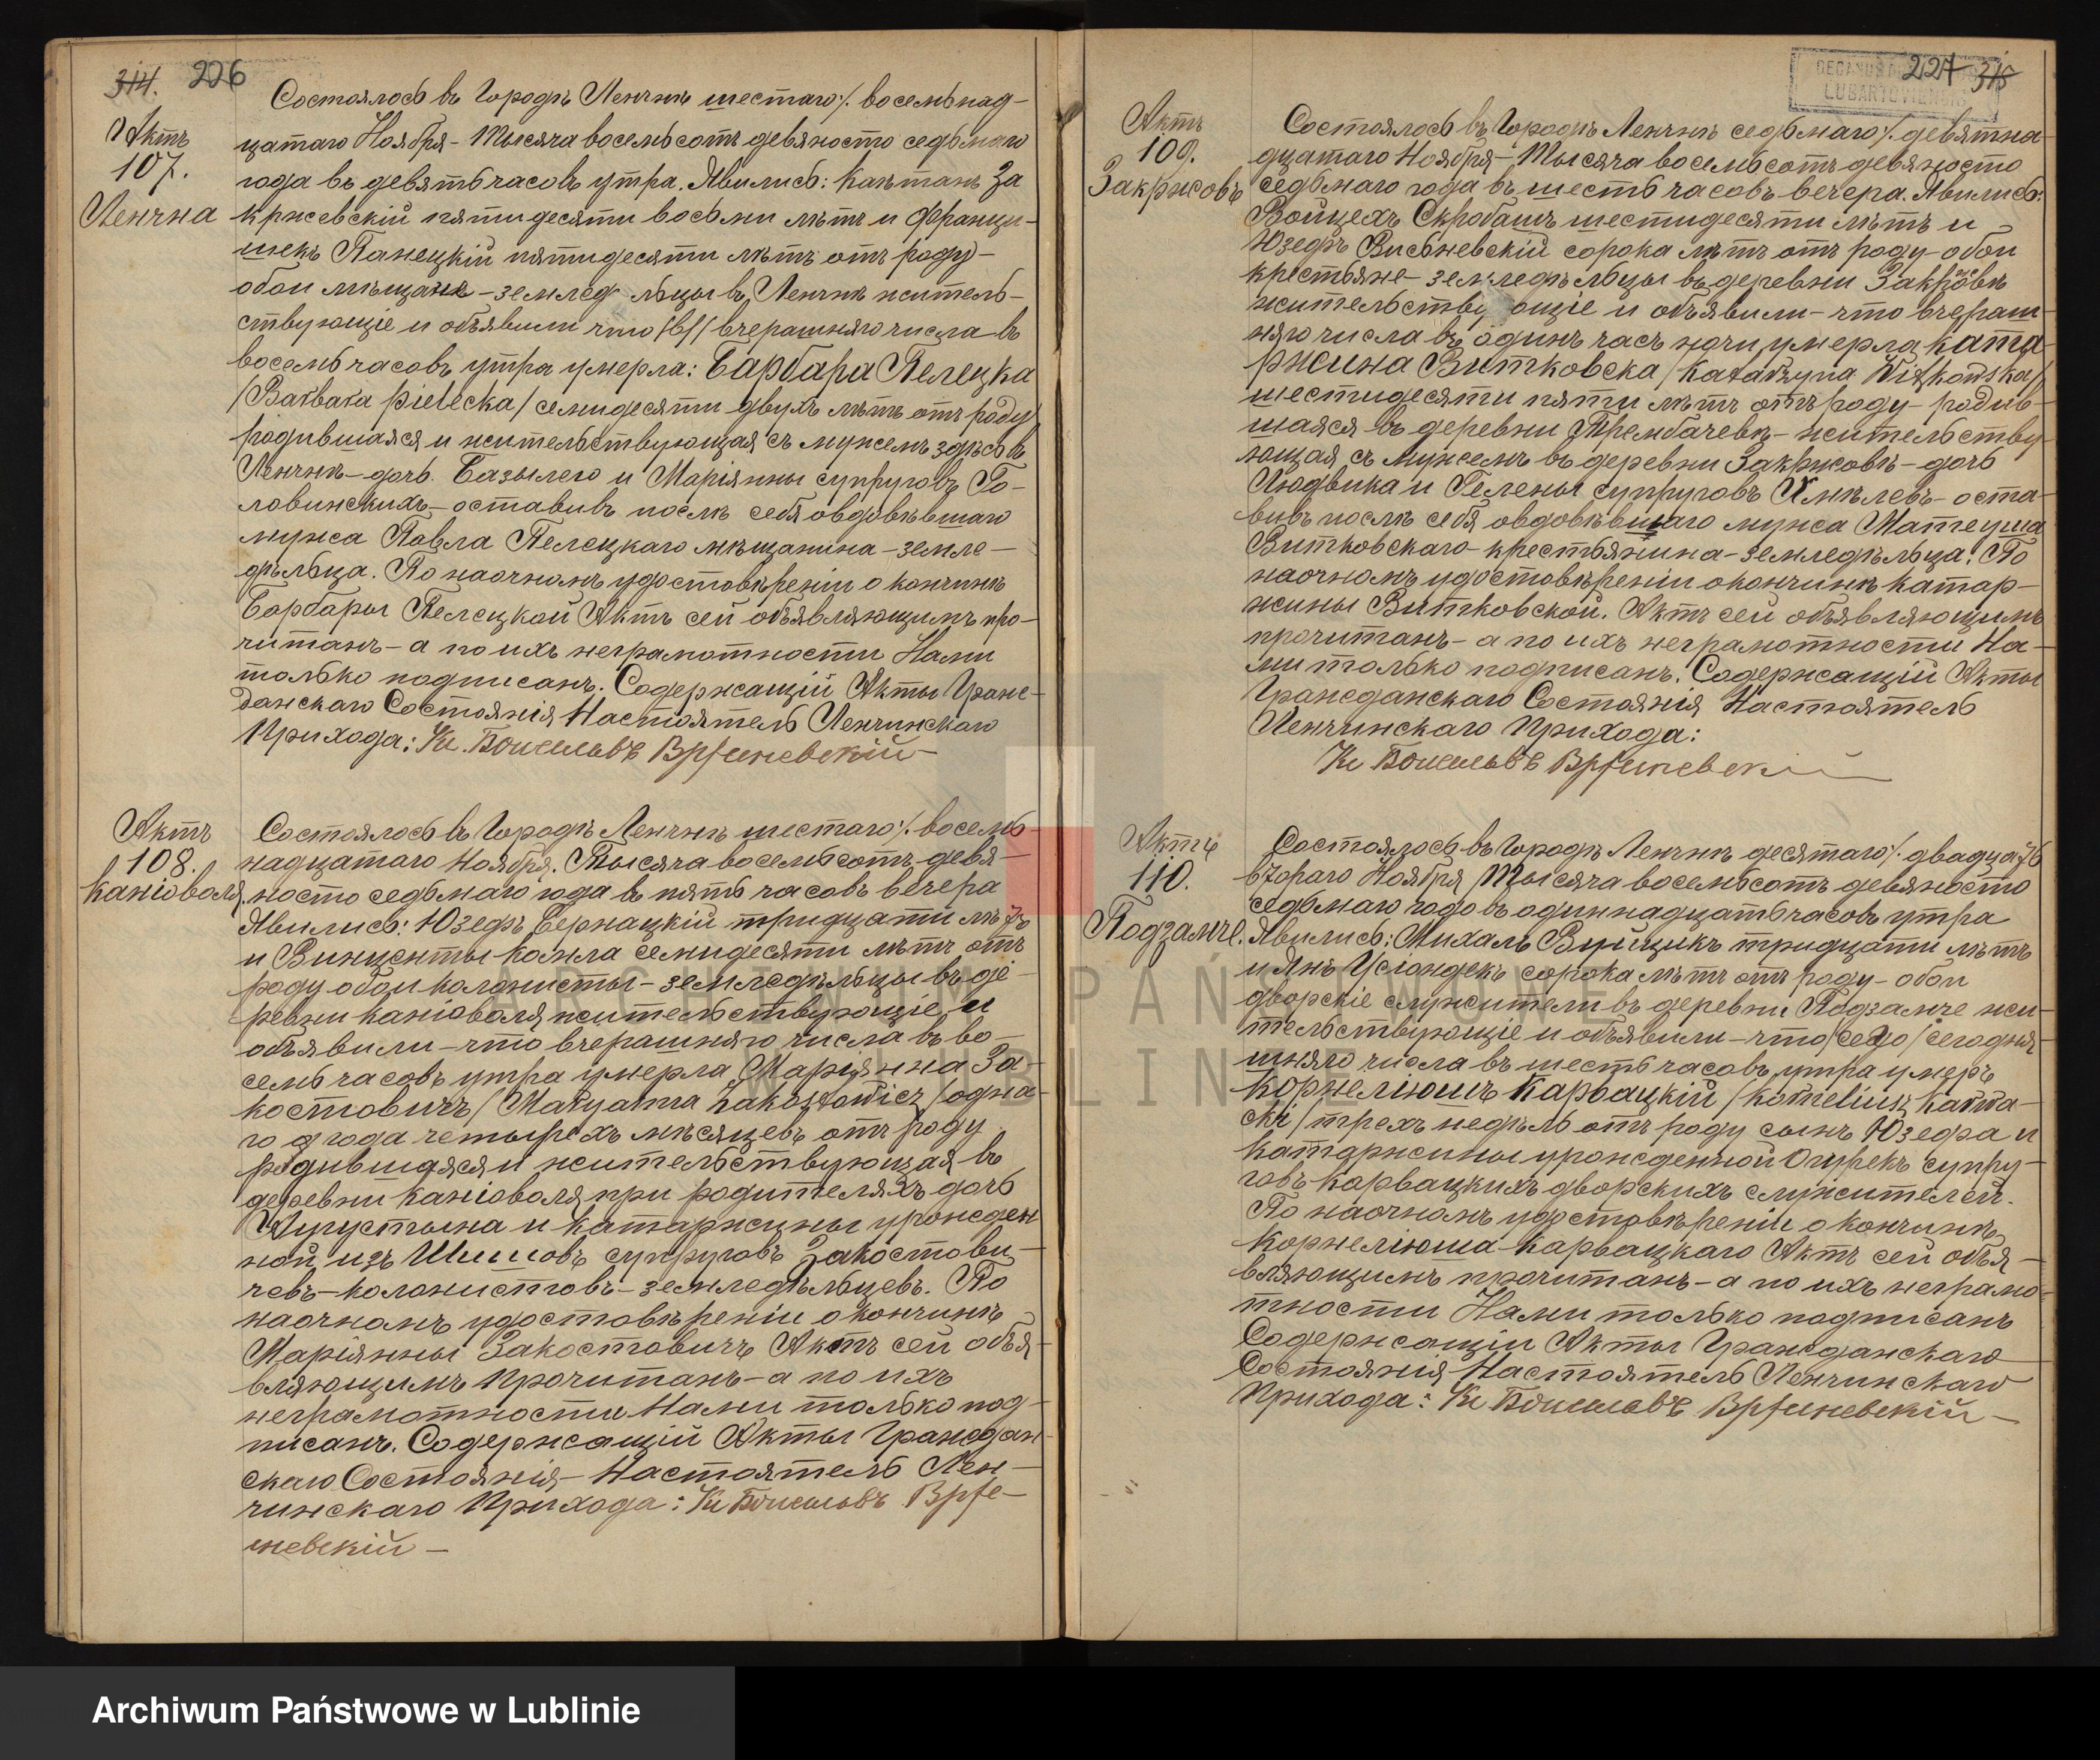 314. 226
Актъ
107.
Ленчна
Состоялось въ Городѣ Ленчнѣ шестаго /. восемьнад-
цатаго Ноября - Тысяча восемьсотъ девяносто седьмаго
года въ девять часовъ утра. Явились: Каэтанъ За
кржевскій пятидесяти восьми лѣтъ и Францы-
шекъ Панецкій пятидесяти лѣтъ отъ роду -
обои мѣщане - земледѣльцы въ Ленчнѣ житель-
ствующіе и объявили что /въ/ вчерашняго числа въ
восемь часовъ утра умерла: Барбара Пелецка
/Barbara Pielecka/ семидесяти двухъ лѣтъ отъ роду
родившаяся и жительствующая съ мужемъ здѣсь въ
Ленчнѣ - дочь Базылего и Маріянны супруговъ Го-
ловинскихъ - оставивъ послѣ себя овдовѣвшаго
мужа Павла Пелецкаго мѣщанина - земле-
дѣльца. По наочномъ удостовѣреніи о кончинѣ
Барбары Пелецкой Актъ сей объявляющимъ про-
читанъ - а по ихъ неграмотности Нами
только подписанъ. Содержащій Акты Граж-
данскаго Состоянія Настоятель Ленчинскаго
Прихода: Кс. Болеславъ Врʃесневскій
Актъ
108.
Каніоволя.
Состоялось въ Городѣ Ленчнѣ шестаго /. восемь-
надцатаго Ноября. Тысяча восемьсотъ девя-
носто седьмаго года въ пять часовъ вечера
Явились: Юзефъ Бернацкій тридцати лѣтъ
и Винценты Козла семидесяти лѣтъ отъ
роду обои колонисты - земледѣльцы въ де-
ревни Каніоволя жительствующіе и
объявили - что вчерашняго числа въ во-
семь часовъ утра умерла Маріянна За-
костовичъ /Maryanna Zakostowicz/ одна-
го года четырехъ мѣсяцевъ отъ роду
родившаяся и жительствующая въ
деревни Каніоволя при родителяхъ дочь
Аугустына и Катаржины урожден
ной изъ супруговъ Закостови-
чевъ - колонистовъ - земледѣльцевъ. По
наочномъ удостовѣреніи о кончинѣ
Маріянны Закостовичъ Актъ сей объя-
вляющимъ прочитанъ - а по ихъ
неграмотности Нами только под-
писанъ. Содержащій Акты Граждан-
скаго Состоянія - Настоятель Лен-
чинскаго Прихода: Кс Болеславъ Врʃе-
сневскій -
227 315
DECANUS
LUBARTOVIENSIS
Актъ
109.
Закржовъ
Состоялось въ Городѣ Ленчнѣ седьмаго /. девятна-
дцатаго Ноября - Тысяча восемьсотъ девяносто
седьмаго года въ шесть часовъ вечера. Явились:
Войцехъ Скробашъ шестидесяти лѣтъ и
Юзефъ Висьневскій сорока лѣтъ отъ роду - обои
крестьяне - земледѣльцы въ деревни Закржовѣ
жительствующіе и объявили - что вчераш-
няго числа въ одинъ часъ ночи умерла Ката-
ржина Витковска /Katarzyna Witkowska/
шестидесяти пяти лѣтъ отъ роду - родив-
шаяся въ деревни Трембачевѣ - жительству-
ющая съ мужемъ въ деревни Закржовѣ - дочь
Людвика и Гелены супруговъ Хмѣлевъ - оста-
вивъ послѣ себя овдовѣвшаго мужа Матеуша
Витковскаго - крестьянина - земледѣльца. По
наочномъ удостовѣреніи о кончинѣ Катар-
жины Витковской. Актъ сей объявляющимъ
прочитанъ - а по ихъ неграмотности На-
ми только подписанъ. Содержащій Акты
Гражданскаго Состоянія Настоятель
Ленчинскаго Прихода:
Кс Болеславъ Врʃесневскій
Актъ
110.
Подзамче.
Состоялось въ Городѣ Ленчнѣ десятаго /. двадцать
втораго Ноября Тысяча восемьсотъ девяносто
седьмаго года въ одиннадцать часовъ утра
Явились: Михалъ Вуйцикъ тридцати лѣтъ
и Янъ Усіондекъ сорока лѣтъ отъ роду - обои
дворскіе служители въ деревни Подзамче жи-
тельствующіе и объявили - что /сего/ сегодня-
шняго числа въ шесть часовъ утра умеръ
Корнеліюшъ Карвацкій /Korneliusz Karwa-
cki/ трехъ недѣль отъ роду сынъ Юзефа и
Катаржины урожденной Огурекъ супру-
говъ Карвацкихъ дворскихъ служителей.
По наочномъ удостовѣреніи о кончинѣ
Корнеліюша Карвацкаго Актъ сей объя-
вляющимъ прочитанъ - а по ихъ неграмо-
тности Нами только подписанъ
Содержащій Акты Гражданскаго
Состоянія - Настоятель Ленчинскаго
Прихода: Кс Болеславъ Врʃесневскій -
ARCHIWUM PAŃSTWOWE
W LUBLINIE
Archiwum Państwowe w Lublinie